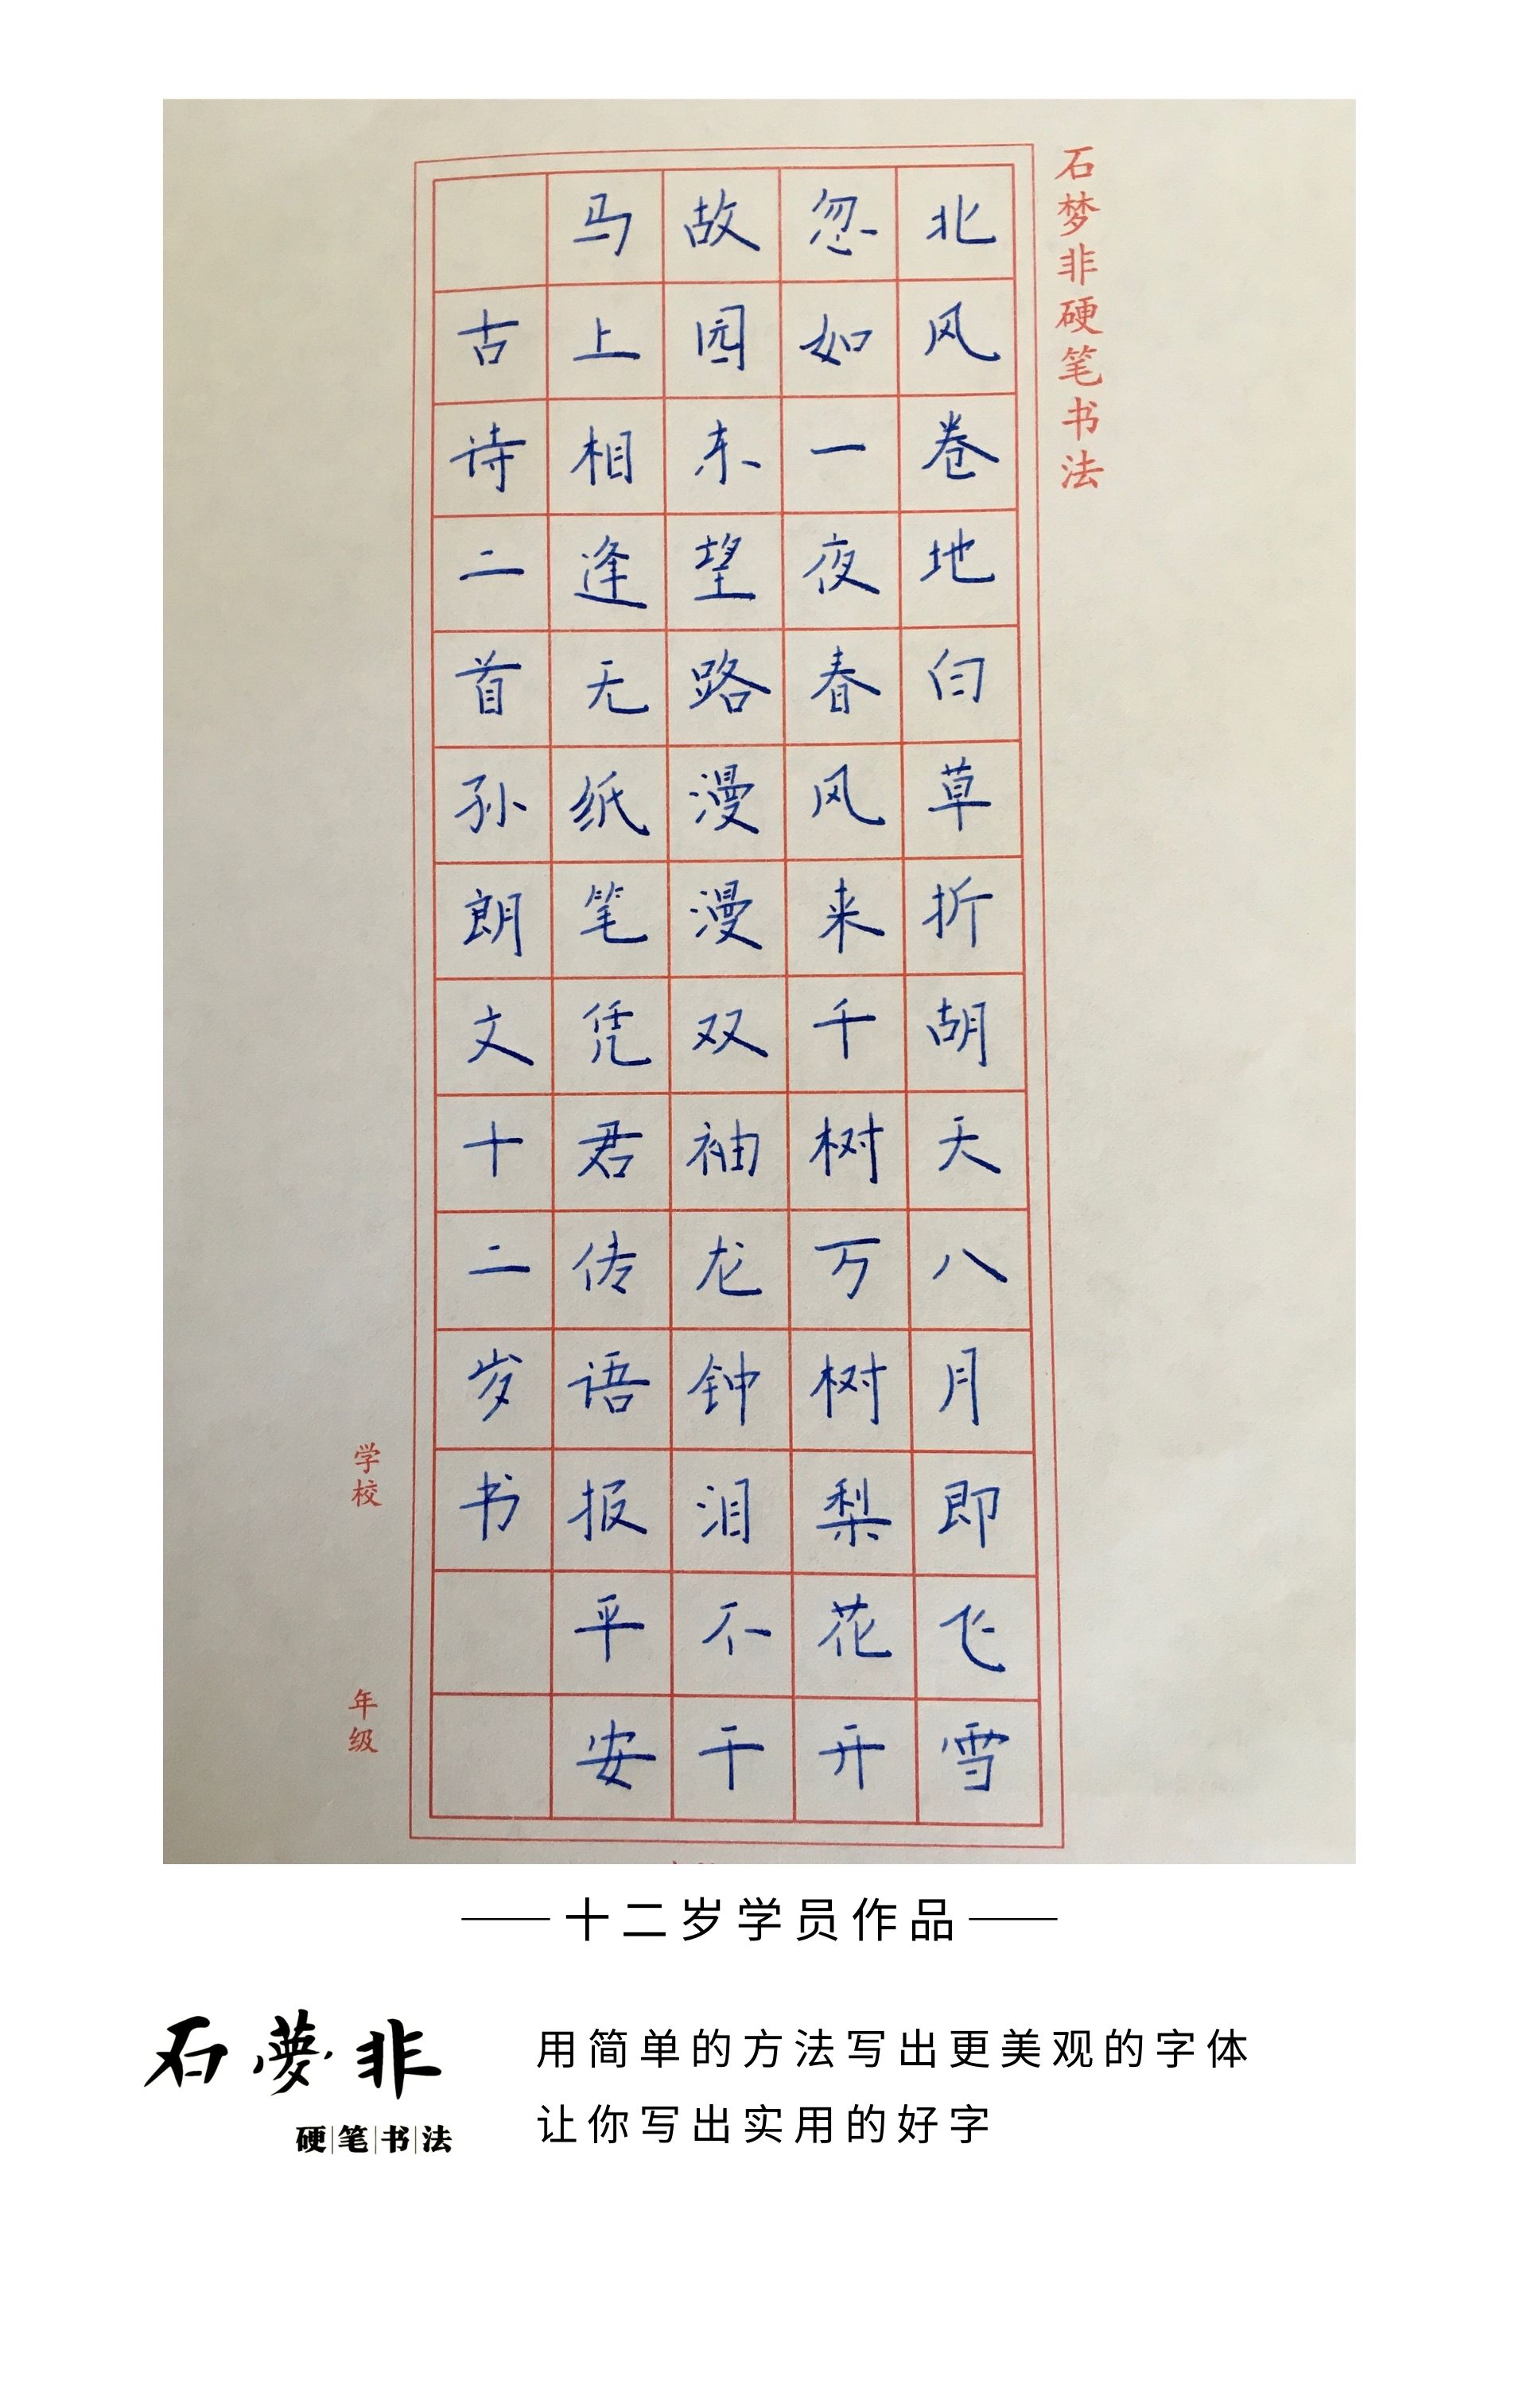 石梦非硬笔书法
北风卷地白草折胡天八月即飞雪
忽如一夜春风来千树万树梨花开
故园东望路漫漫双袖龙钟泪不干
马上相逢无纸笔凭君传语报平安
古诗二首孙朗文十二岁书
学校
年级
十二岁学员作品
石夢非
硬笔书法
用简单的方法写出更美观的字体
让你写出实用的好字